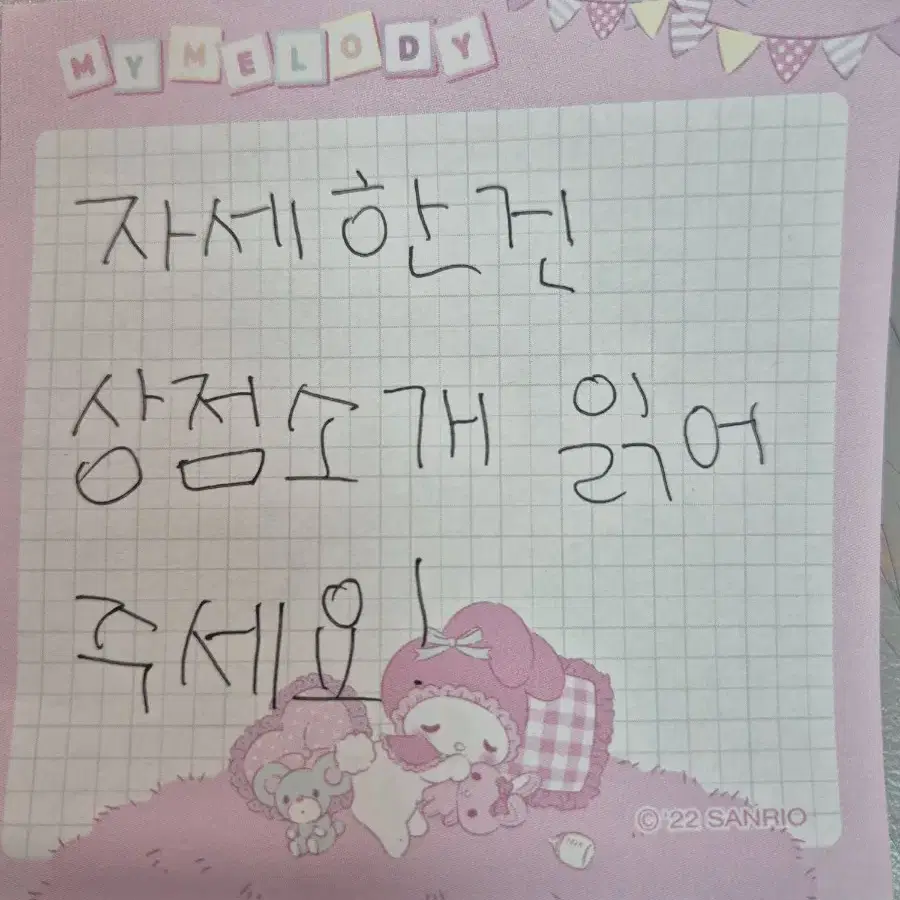 MY MELODY
자세한건
상점소개 읽어
주세요!
© '22 SANRIO